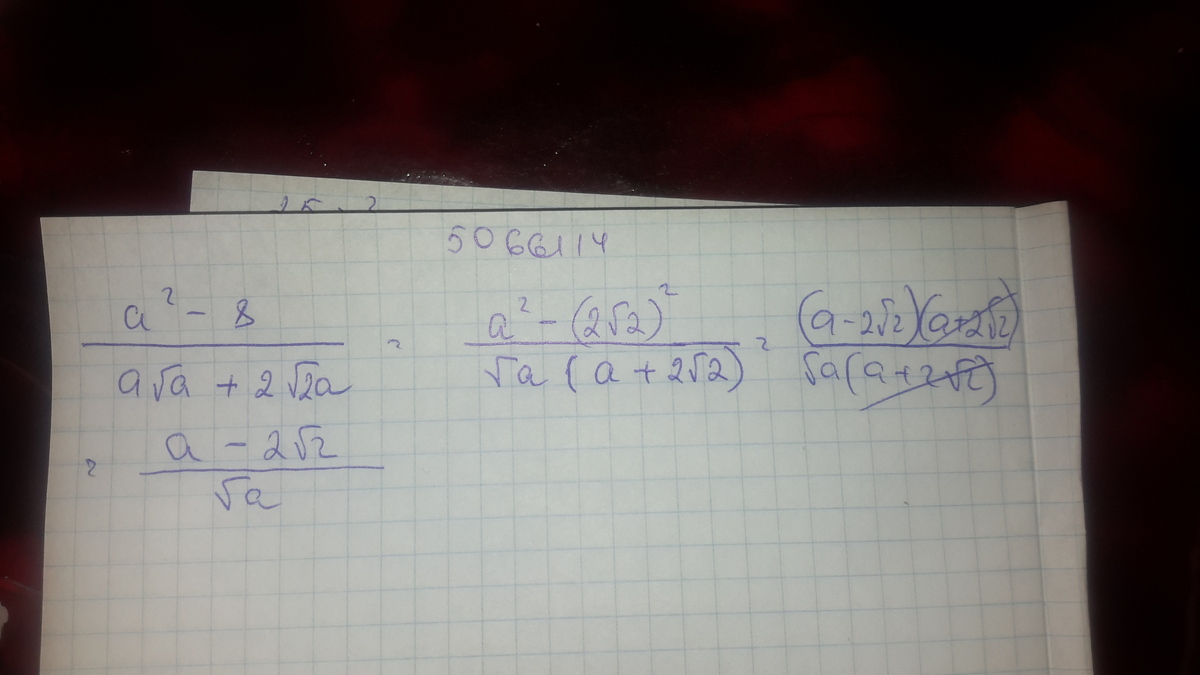 5066114
a² - 8 / a√a + 2√2a = a² - (2√2)² / √a (a + 2√2) = (a - 2√2)(a + 2√2) / √a(a + 2√2)
= a - 2√2 / √a